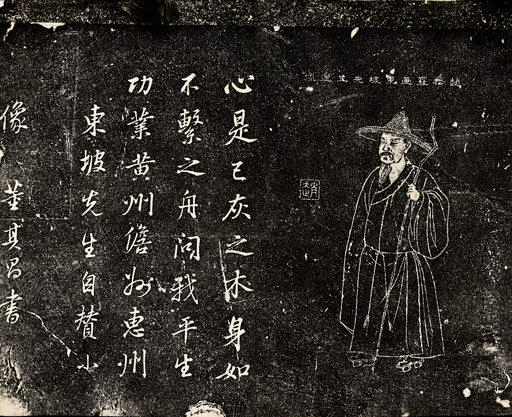 畫東坡先生
心是已灰之木身如
不繫之舟問我平生
功業黄州儋州惠州
東坡先生自贊小
像 董其昌書